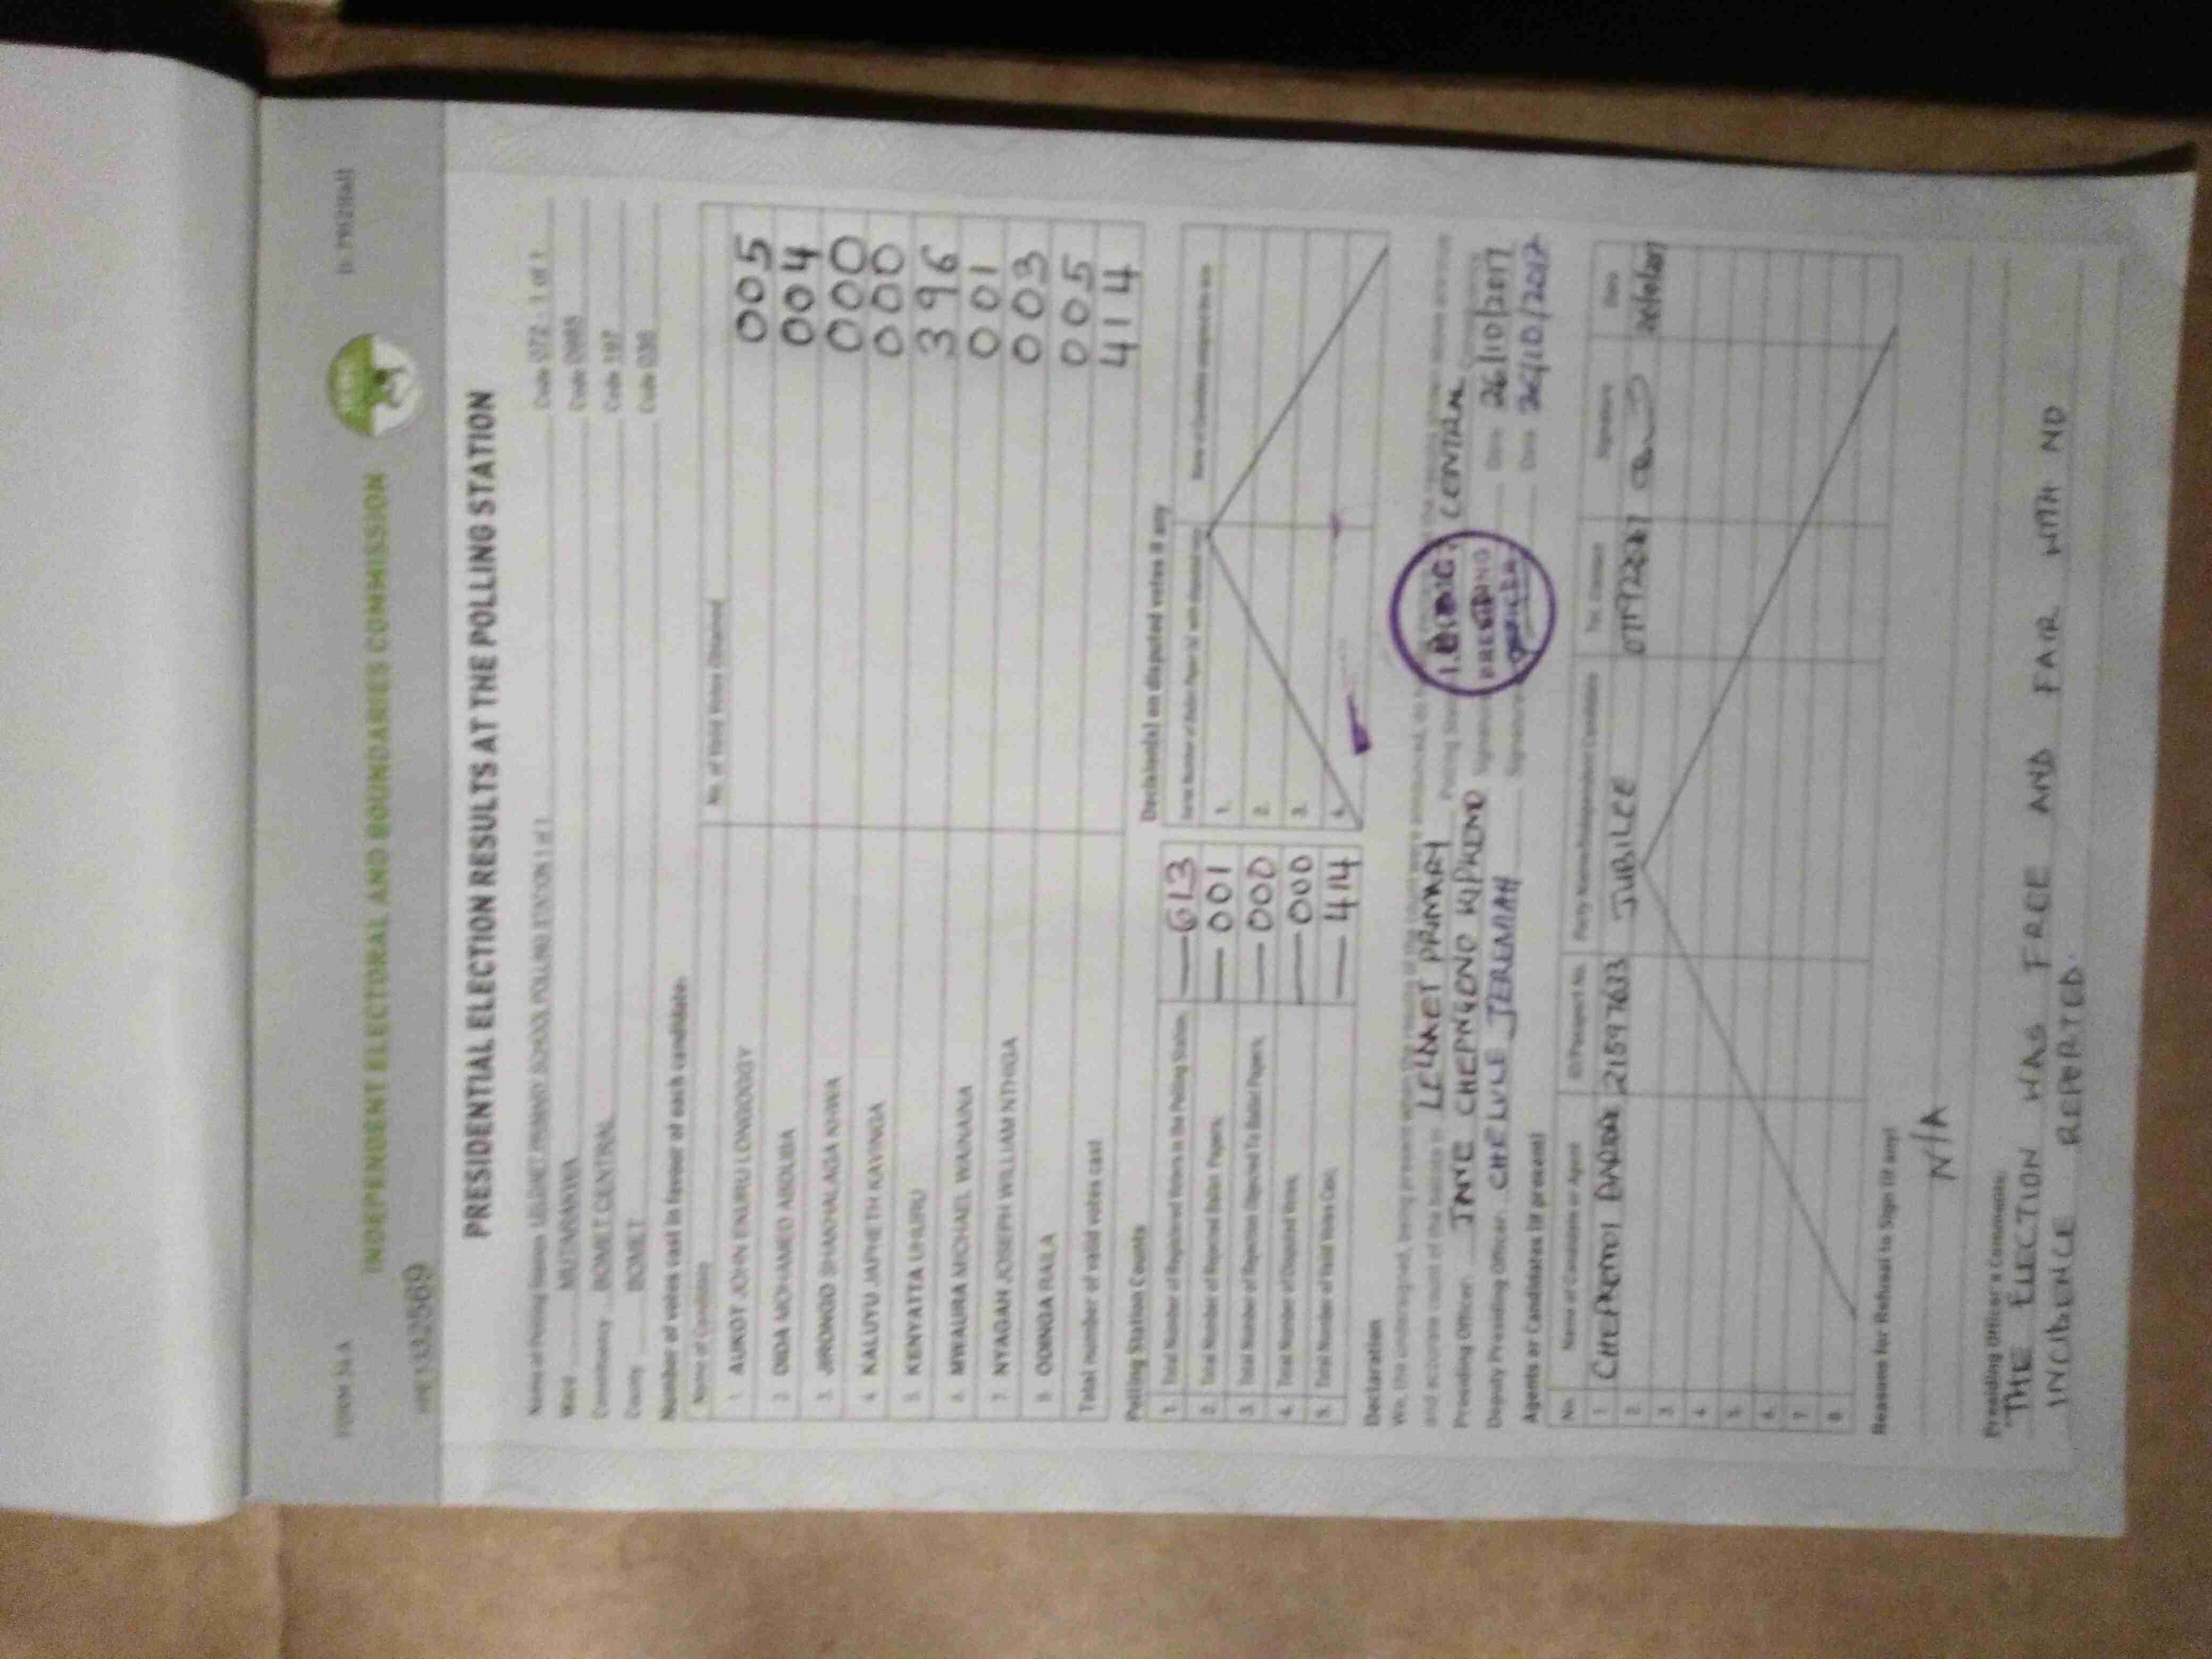 FORM 34 A
INDEPENDENT ELECTORAL AND BOUNDARIES COMMISSION
PRESIDENTIAL ELECTION RESULTS AT THE POLLING STATION
Name of Polling Station LELDAET PRIMARY SCHOOL POLLING STATION 1 of 1 Code 072 - 1 of 1
Ward MUTARAKWA Code 0985
Constituency BOMET CENTRAL Code 197
County BOMET Code 036
Number of votes cast in favour of each candidate:
Name of Candidate No. of Valid Votes Obtained
1. AUKOT JOHN EKURU LONGOGGY 005
2. DIDA MOHAMED ABDUBA 004
3. JIRONGO SHAKHALAGA KHWA 000
4. KALUYU JAPHETH KAVINGA 000
5. KENYATTA UHURU 396
6. MWAURA MICHAEL WAINAINA 001
7. NYAGAH JOSEPH WILLIAM NTHIGA 003
8. ODINGA RAILA 005
Total number of valid votes cast 414
Polling Station Counts
1. Total Number of Registered Voters in the Polling Station 613
2. Total Number of Rejected Ballot Papers 001
3. Total Number of Rejection Objected To Ballot Papers 000
4. Total Number of Disputed Votes 000
5. Total Number of Valid Votes Cast 414
Decision(s) on disputed votes if any
1.
2.
3.
4.
Declaration
We, the undersigned, being present when the results of the count were announced, do
and accurate count of the ballots in LELDAET PRIMARY Polling Station CENTRAL
Presiding Officer CHEPNGONO Signature Date 26/10/2017
Deputy Presiding Officer JEREMIAH Signature Date 26/10/2017
I.E.B.C
PRESIDING
OFFICER
Agents or Candidates (if present)
No. Name of Candidate or Agent ID/Passport No. Party Name/Independent Candidate Tel. Contact Signature Date
1. CHEPKEMOI 21597633 JUBILEE
2.
3.
4.
5.
6.
7.
8.
Reasons for Refusal to Sign (if any)
N/A
Presiding Officer's Comments:
THE ELECTION WAS FREE AND FAIR WITH NO
INCIDENCE REPORTED.